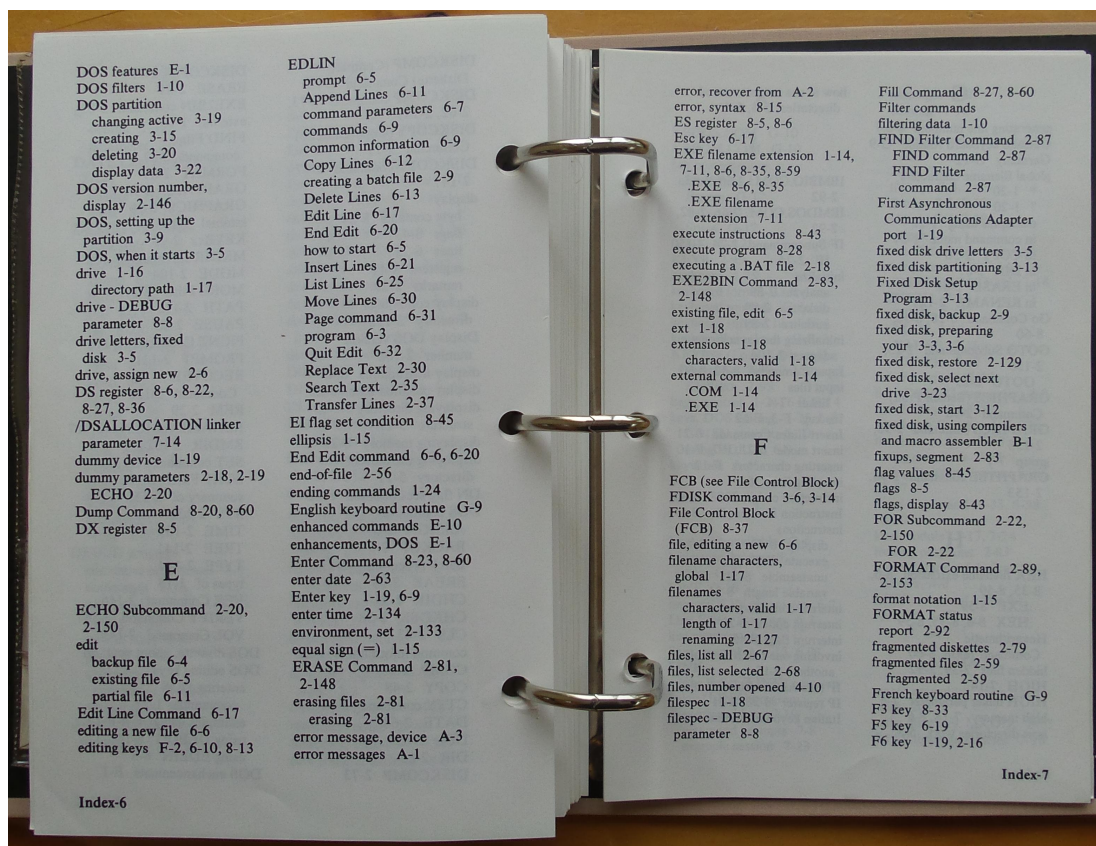 DOS features E-1
DOS filters 1-10
DOS partition
changing active 3-19
creating 3-15
deleting 3-20
display data 3-22
DOS version number,
display 2-146
DOS, setting up the
partition 3-9
DOS, when it starts 3-5
drive 1-16
directory path 1-17
drive - DEBUG
parameter 8-8
drive letters, fixed
disk 3-5
drive, assign new 2-6
DS register 8-6, 8-22,
8-27, 8-36
/DSALLOCATION linker
parameter 7-14
dummy device 1-19
dummy parameters 2-18, 2-19
ECHO 2-20
Dump Command 8-20, 8-60
DX register 8-5
E
ECHO Subcommand 2-20,
2-150
edit
backup file 6-4
existing file 6-5
partial file 6-11
Edit Line Command 6-17
editing a new file 6-6
editing keys F-2, 6-10, 8-13
EDLIN
prompt 6-5
Append Lines 6-11
command parameters 6-7
commands 6-9
common information 6-9
Copy Lines 6-12
creating a batch file 2-9
Delete Lines 6-13
Edit Line 6-17
End Edit 6-20
how to start 6-5
Insert Lines 6-21
List Lines 6-25
Move Lines 6-30
Page command 6-31
program 6-3
Quit Edit 6-32
Replace Text 2-30
Search Text 2-35
Transfer Lines 2-37
EI flag set condition 8-45
ellipsis 1-15
End Edit command 6-6, 6-20
end-of-file 2-56
ending commands 1-24
English keyboard routine G-9
enhanced commands E-10
enhancements, DOS E-1
Enter Command 8-23, 8-60
enter date 2-63
Enter key 1-19, 6-9
enter time 2-134
environment, set 2-133
equal sign (=) 1-15
ERASE Command 2-81,
2-148
erasing files 2-81
erasing 2-81
error message, device A-3
error messages A-1
Index-6
error, recover from A-2
error, syntax 8-15
ES register 8-5, 8-6
Esc key 6-17
EXE filename extension 1-14,
7-11, 8-6, 8-35, 8-59
.EXE 8-6, 8-35
.EXE filename
extension 7-11
execute instructions 8-43
execute program 8-28
executing a .BAT file 2-18
EXE2BIN Command 2-83,
2-148
existing file, edit 6-5
ext 1-18
extensions 1-18
characters, valid 1-18
external commands 1-14
.COM 1-14
.EXE 1-14
F
FCB (see File Control Block)
FDISK command 3-6, 3-14
File Control Block
(FCB) 8-37
file, editing a new 6-6
filename characters,
global 1-17
filenames
characters, valid 1-17
length of 1-17
renaming 2-127
files, list all 2-67
files, list selected 2-68
files, number opened 4-10
filespec 1-18
filespec - DEBUG
parameter 8-8
Fill Command 8-27, 8-60
Filter commands
filtering data 1-10
FIND Filter Command 2-87
FIND command 2-87
FIND Filter
command 2-87
First Asynchronous
Communications Adapter
port 1-19
fixed disk drive letters 3-5
fixed disk partitioning 3-13
Fixed Disk Setup
Program 3-13
fixed disk, backup 2-9
fixed disk, preparing
your 3-3, 3-6
fixed disk, restore 2-129
fixed disk, select next
drive 3-23
fixed disk, start 3-12
fixed disk, using compilers
and macro assembler B-1
fixups, segment 2-83
flag values 8-45
flags 8-5
flags, display 8-43
FOR Subcommand 2-22,
2-150
FOR 2-22
FORMAT Command 2-89,
2-153
format notation 1-15
FORMAT status
report 2-92
fragmented diskettes 2-79
fragmented files 2-59
fragmented 2-59
French keyboard routine G-9
F3 key 8-33
F5 key 6-19
F6 key 1-19, 2-16
Index-7